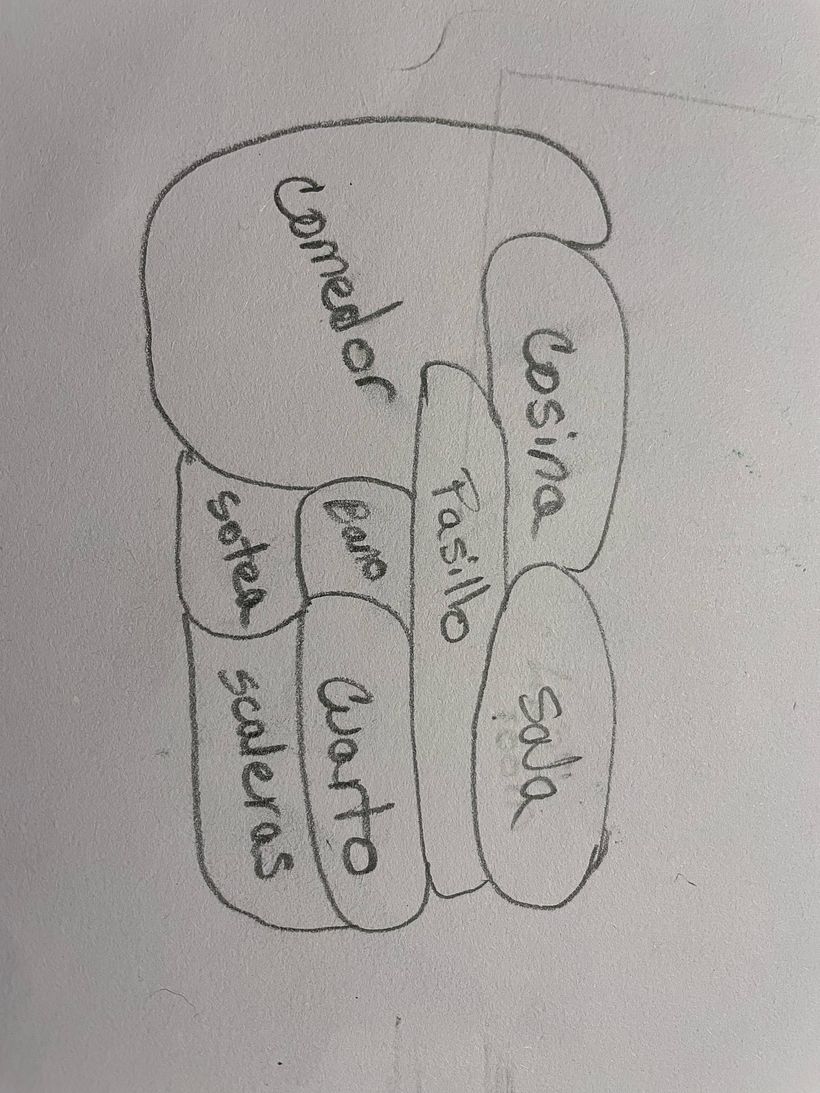 Cosina
Sala
Pasillo
Comedor
Bano
Cuarto
sotea
scaleras